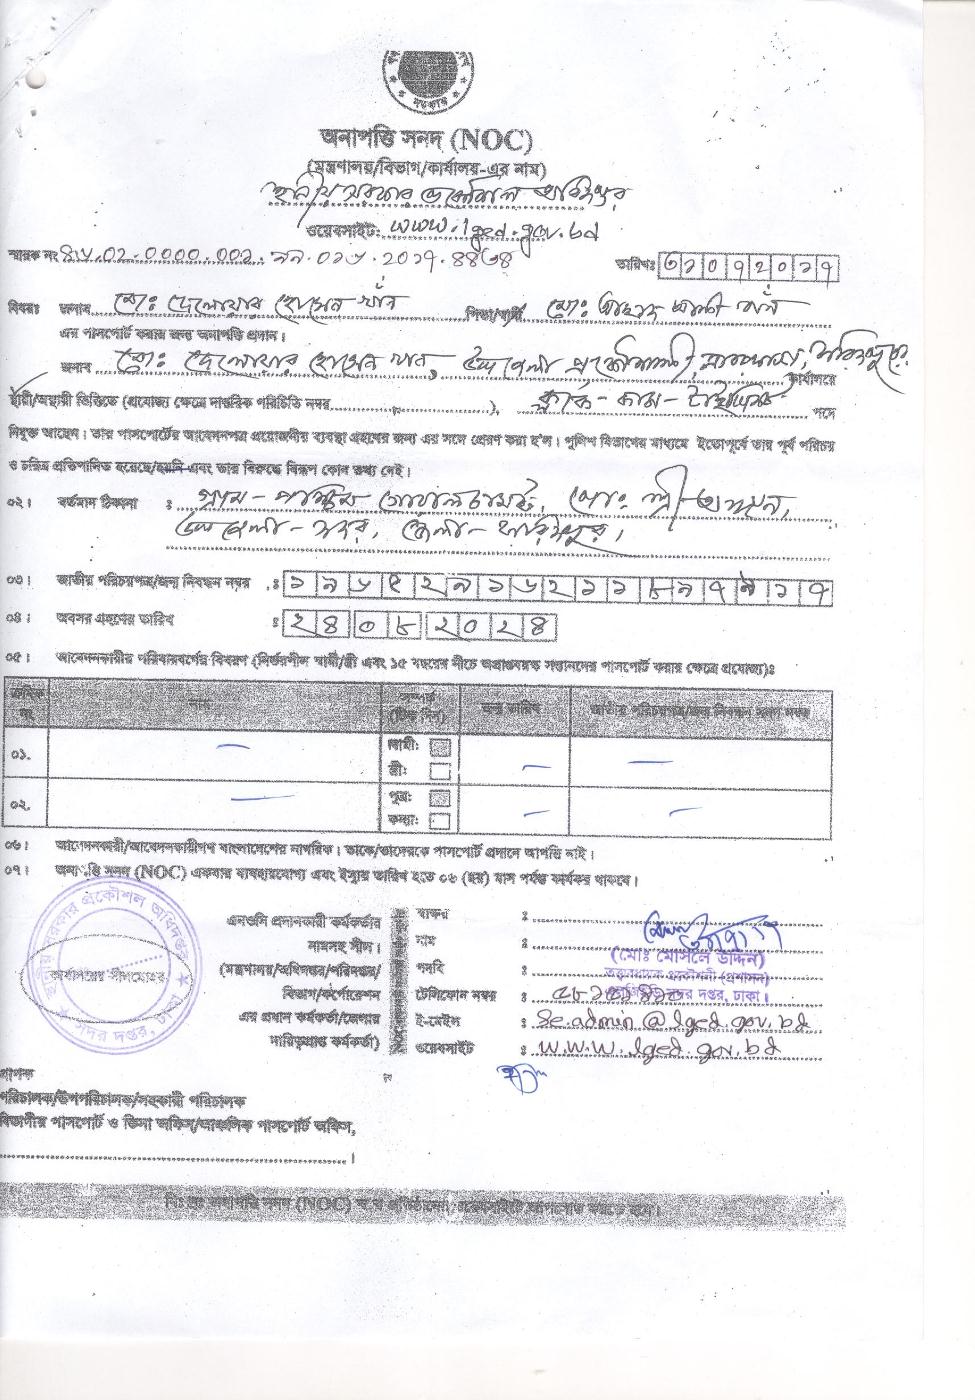 সরকার
অনাপত্তি সনদ (NOC)
(মন্ত্রণালয়/বিভাগ/কার্যালয়-এর নাম)
স্থানীয় সরকার প্রকৌশল অধিদপ্তর
ওয়েবসাইটঃ www.lged.gov.bd
স্মারক নং ৪৬.০২.০০০০.০০১.
তারিখঃ ৩১০৭২০১৭
বিষয়ঃ জনাব মোঃ দেলোয়ার হোসেন খাঁন পিতা/স্বামী মোঃ আলী খাঁন
এর পাসপোর্ট করার জন্য অনাপত্তি প্রদান।
জনাব মোঃ দেলোয়ার হোসেন খান, উপজেলা প্রকৌশলী, ফরিদপুরে কার্যালয়ে
স্থায়ী/অস্থায়ী ভিত্তিতে (প্রযোজ্য ক্ষেত্রে দাপ্তরিক পরিচিতি নম্বর), ক্লার্ক-কাম-টাইপিস্ট পদে
নিযুক্ত আছেন। তার পাসপোর্টের আবেদনপত্র প্রয়োজনীয় ব্যবস্থা গ্রহণের জন্য এর সঙ্গে প্রেরণ করা হ'ল। পুলিশ বিভাগের মাধ্যমে ইতোপূর্বে তার পূর্ব পরিচয়
ও চরিত্র প্রতিপাদিত হয়েছে/হয়নি এবং তার বিরুদ্ধে বিরূপ কোন তথ্য নেই।
০২। বর্তমান ঠিকানা : গ্রাম-পশ্চিম গোয়ালচামট, পোঃ শ্রীঅঙ্গন,
উপজেলা-সদর, জেলা-ফরিদপুর।
০৩। জাতীয় পরিচয়পত্র/জন্ম নিবন্ধন নম্বর :
০৪। অবসর গ্রহণের তারিখ : ২৪০৮২০২৪
০৫। আবেদনকারীর পরিবারবর্গের বিবরণ (নির্ভরশীল স্বামী/স্ত্রী এবং ১৫ বছরের নীচে অপ্রাপ্তবয়স্ক সন্তানদের পাসপোর্ট করার ক্ষেত্রে প্রযোজ্য)ঃ
ক্রমিক নং নাম সম্পর্ক (টিক দিন) জন্ম তারিখ জাতীয় পরিচয়পত্র/জন্ম নিবন্ধন সনদ নম্বর
০১. স্বামী:
স্ত্রী:
০২. পুত্র:
কন্যা:
০৬। আবেদনকারী/আবেদনকারীগণ বাংলাদেশের নাগরিক। তাকে/তাদেরকে পাসপোর্ট প্রদানে আপত্তি নাই।
০৭। অনাপত্তি সনদ (NOC) একবার ব্যবহারযোগ্য এবং ইস্যুর তারিখ হতে ০৬ (ছয়) মাস পর্যন্ত কার্যকর থাকবে।
স্থানীয় সরকার প্রকৌশল অধিদপ্তর
সদর দপ্তর, ঢাকা
কার্যালয়ের সীলমোহর
এনওসি প্রদানকারী কর্মকর্তার
নামসহ সীল।
(মন্ত্রণালয়/অধিদপ্তর/পরিদপ্তর/
বিভাগ/কর্পোরেশন
এর প্রধান কর্মকর্তা/জেলার
দায়িত্বপ্রাপ্ত কর্মকর্তা)
স্বাক্ষর :
নাম : (মোঃ মোসলে উদ্দিন)
পদবি : তত্ত্বাবধায়ক প্রকৌশলী (প্রশাসন)
এলজিইডি সদর দপ্তর, ঢাকা।
টেলিফোন নম্বর :
ই-মেইল : se.admin@lged.gov.bd
ওয়েবসাইট : www.lged.gov.bd
প্রাপক
পরিচালক/উপপরিচালক/সহকারী পরিচালক
বিভাগীয় পাসপোর্ট ও ভিসা অফিস/আঞ্চলিক পাসপোর্ট অফিস,
বিঃ দ্রঃ অনাপত্তি সনদ (NOC) স্ব স্ব প্রতিষ্ঠানের ওয়েবসাইটে আপলোড করতে হবে।